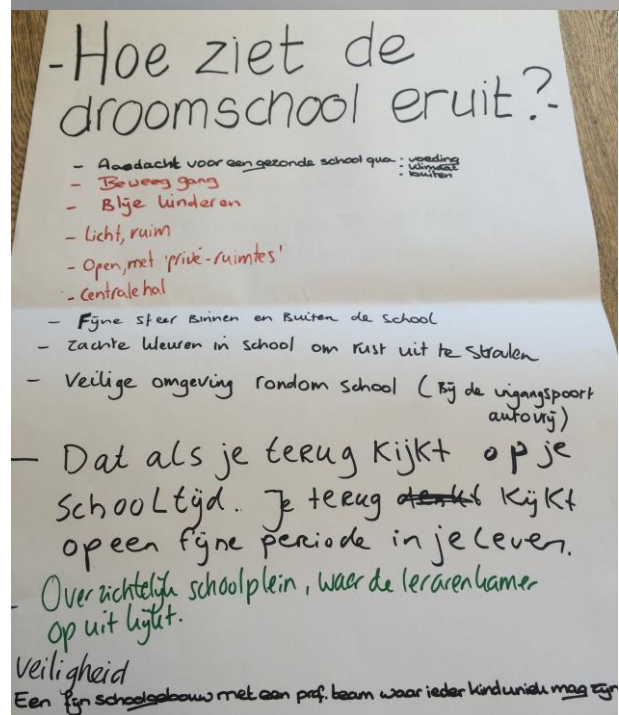 -Hoe ziet de
droomschool eruit?-
- Aandacht voor een gezonde school qua : voeding
: klimaat
: buiten
- Beweeg gang
- Blije kinderen
- Licht, ruim
- Open, met 'privé-ruimtes'
- Centrale hal
- Fijne sfeer Binnen en Buiten de School
- zachte kleuren in school om rust uit te stralen
- Veilige omgeving rondom school (Bij de uigangspoort
autovrij)
- Dat als je terug kijkt op je
schooltijd. Je terug denkt kijkt
op een fijne periode in je leven.
- Overzichtelijk schoolplein, waar de lerarenkamer
op uit kijkt.
Veiligheid
Een fijn schoolgebouw met een prof. team waar ieder kind uniek mag zijn